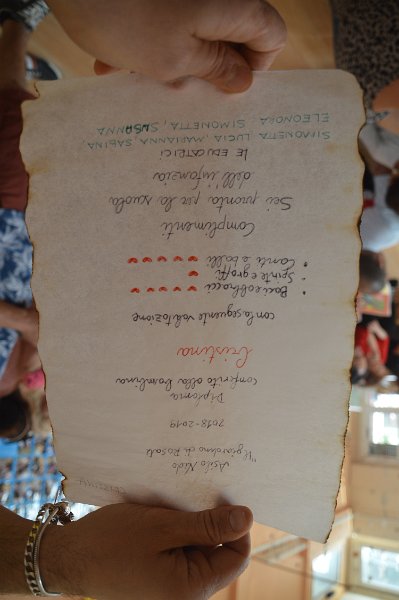 Asilo Nido
"Il giardino di Rosale
2018-2019
Diploma
conferito alla bambina
Cristina
con la seguente valutazione
• Baci e abbracci ♥ ♥ ♥ ♥ ♥
• Spinte e graffi ♥
• Canti e balli ♥ ♥ ♥ ♥ ♥
Complimenti
Sei pronta per la scuola
dell'infanzia
LE EDUCATRICI
SIMONETTA, LUCIA, MARIANNA, SABINA,
ELEONORA, SIMONETTA, SUSANNA